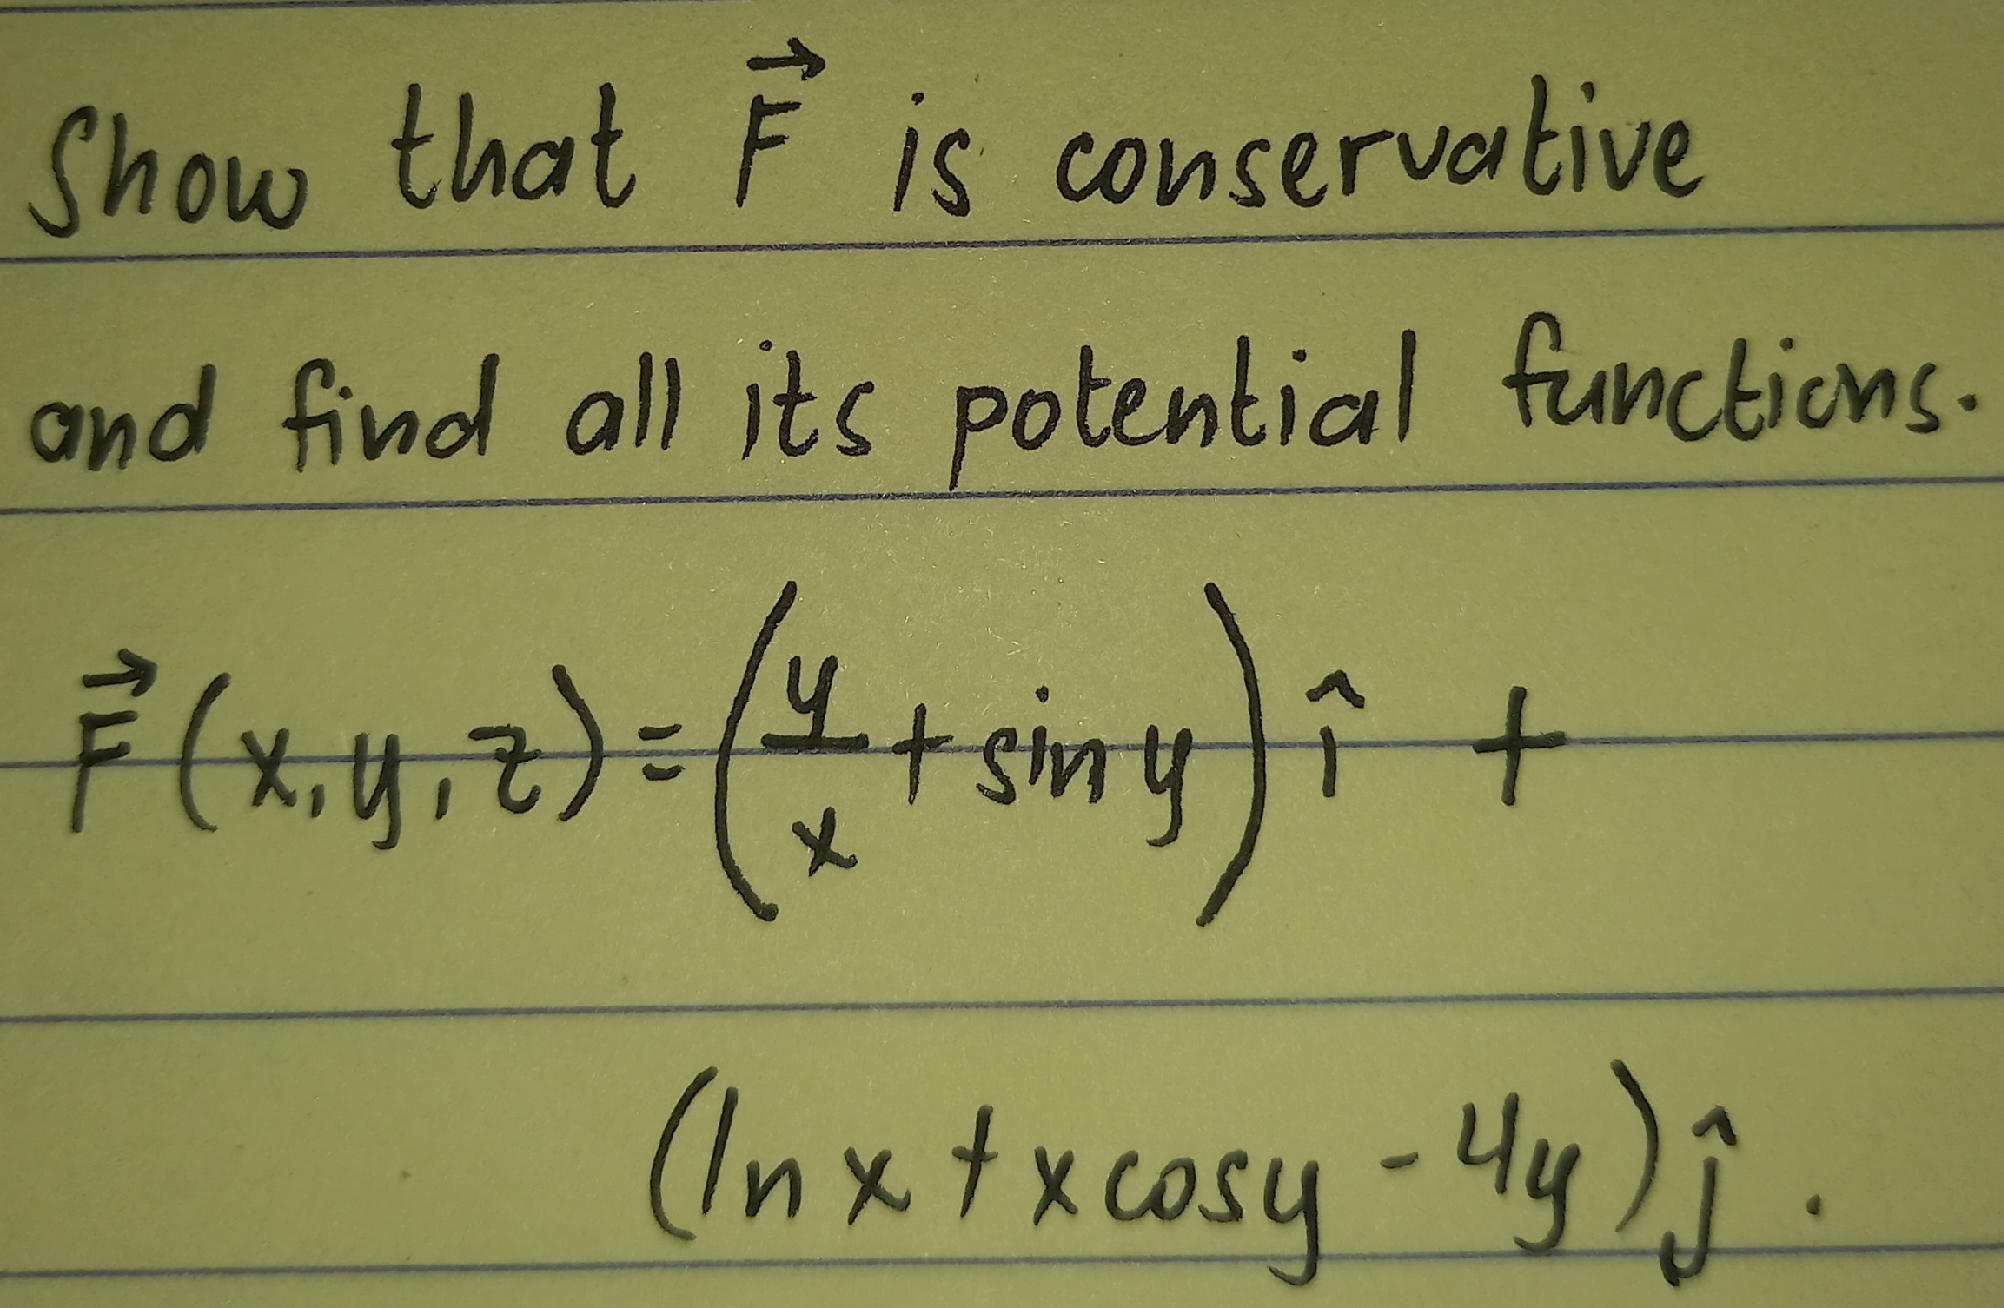 Show that F⃗ is conservative
and find all its potential functions.
F⃗(x,y,z)=(y/x+siny)î +
(lnx+xcosy-4y)ĵ.